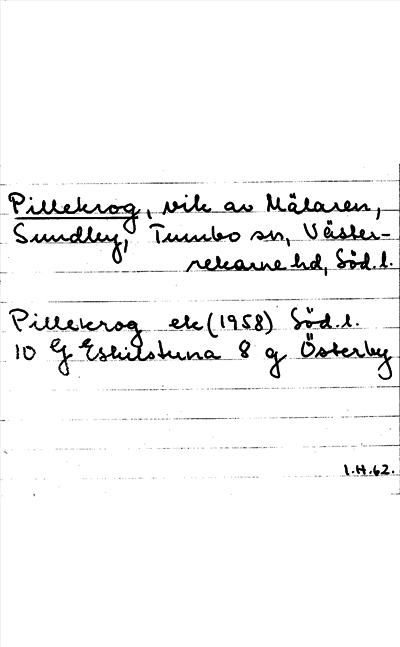 Pillekrog, vik av Mälaren,
Sundby, Tumbo sn, Väster-
rekarne hd, Söd. l.
Pillekrog ek (1958) Söd. l.
10 G Eskilstuna 8 g Österby
I.H.62.